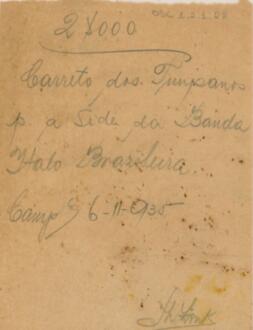 2$000
Carreto dos Timpanos
p. a Séde da Banda
Italo Brasileira.
Camp.s 6-11-935